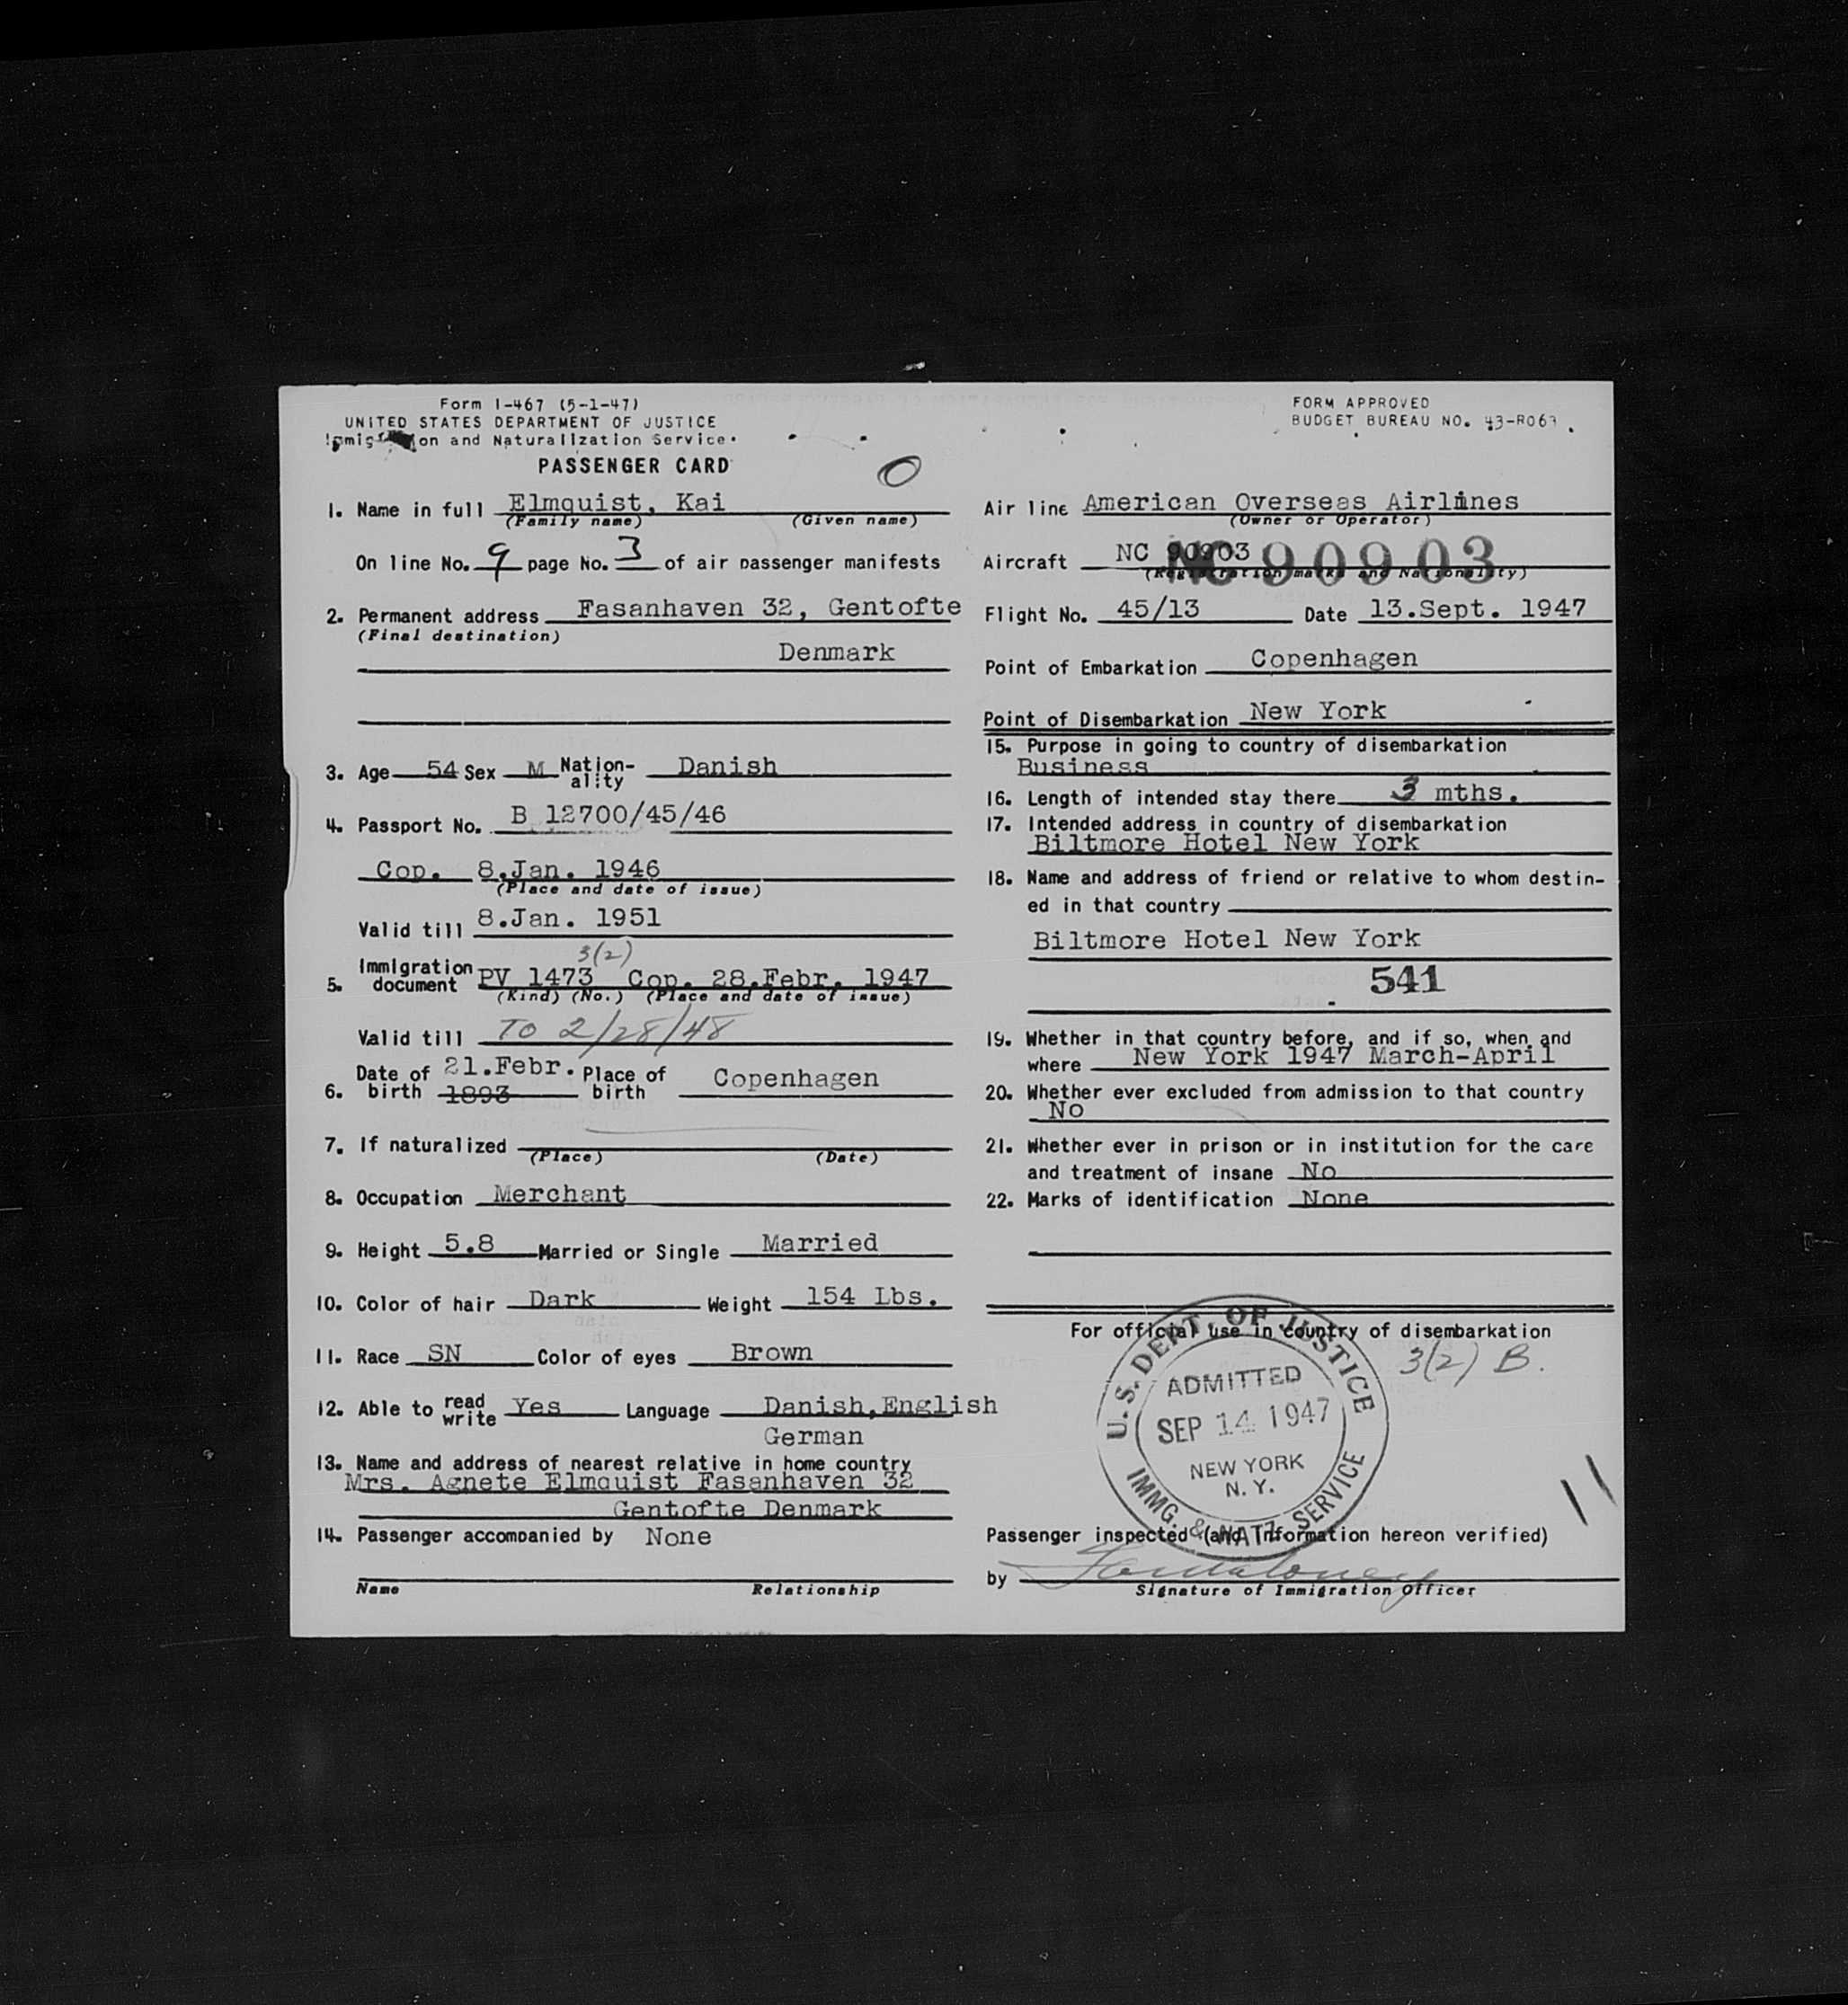 Form I-467 (5-1-47)
UNITED STATES DEPARTMENT OF JUSTICE
Immigration and Naturalization Service.
PASSENGER CARD
FORM APPROVED
BUDGET BUREAU NO. 43-R063.
1. Name in full Elmquist, Kai
(Family name) (Given name)
On line No. 9 page No. 3 of air passenger manifests
2. Permanent address Fasanhaven 32, Gentofte
(Final destination)
Denmark
3. Age 54 Sex M Nation-ality Danish
4. Passport No. B 12700/45/46
Cop. 8.Jan. 1946
(Place and date of issue)
Valid till 8.Jan. 1951
3(2)
5. Immigration document PV 1473 Cop. 28.Febr. 1947
(Kind) (No.) (Place and date of issue)
Valid till TO 2/28/48
6. Date of birth 21.Febr. 1893 Place of birth Copenhagen
7. If naturalized
(Place) (Date)
8. Occupation Merchant
9. Height 5.8 Married or Single Married
10. Color of hair Dark Weight 154 Lbs.
11. Race SN Color of eyes Brown
12. Able to read write Yes Language Danish,English
German
13. Name and address of nearest relative in home country
Mrs. Agnete Elmquist Fasanhaven 32
Gentofte Denmark
14. Passenger accompanied by None
Name Relationship
Air line American Overseas Airlines
(Owner or Operator)
Aircraft NC 90903 NC 90903
(Registration marks and Nationality)
Flight No. 45/13 Date 13.Sept. 1947
Point of Embarkation Copenhagen
Point of Disembarkation New York
15. Purpose in going to country of disembarkation
Business
16. Length of intended stay there 3 mths.
17. Intended address in country of disembarkation
Biltmore Hotel New York
18. Name and address of friend or relative to whom destin-
ed in that country
Biltmore Hotel New York
541
19. Whether in that country before, and if so, when and
where New York 1947 March-April
20. Whether ever excluded from admission to that country
No
21. Whether ever in prison or in institution for the care
and treatment of insane No
22. Marks of identification None
For official use in country of disembarkation
3(2) B.
U.S. DEPT. OF JUSTICE
ADMITTED
SEP 14 1947
NEW YORK
N. Y.
IMMG. & NATZ. SERVICE
Passenger inspected (and information hereon verified)
by
Signature of Immigration Officer